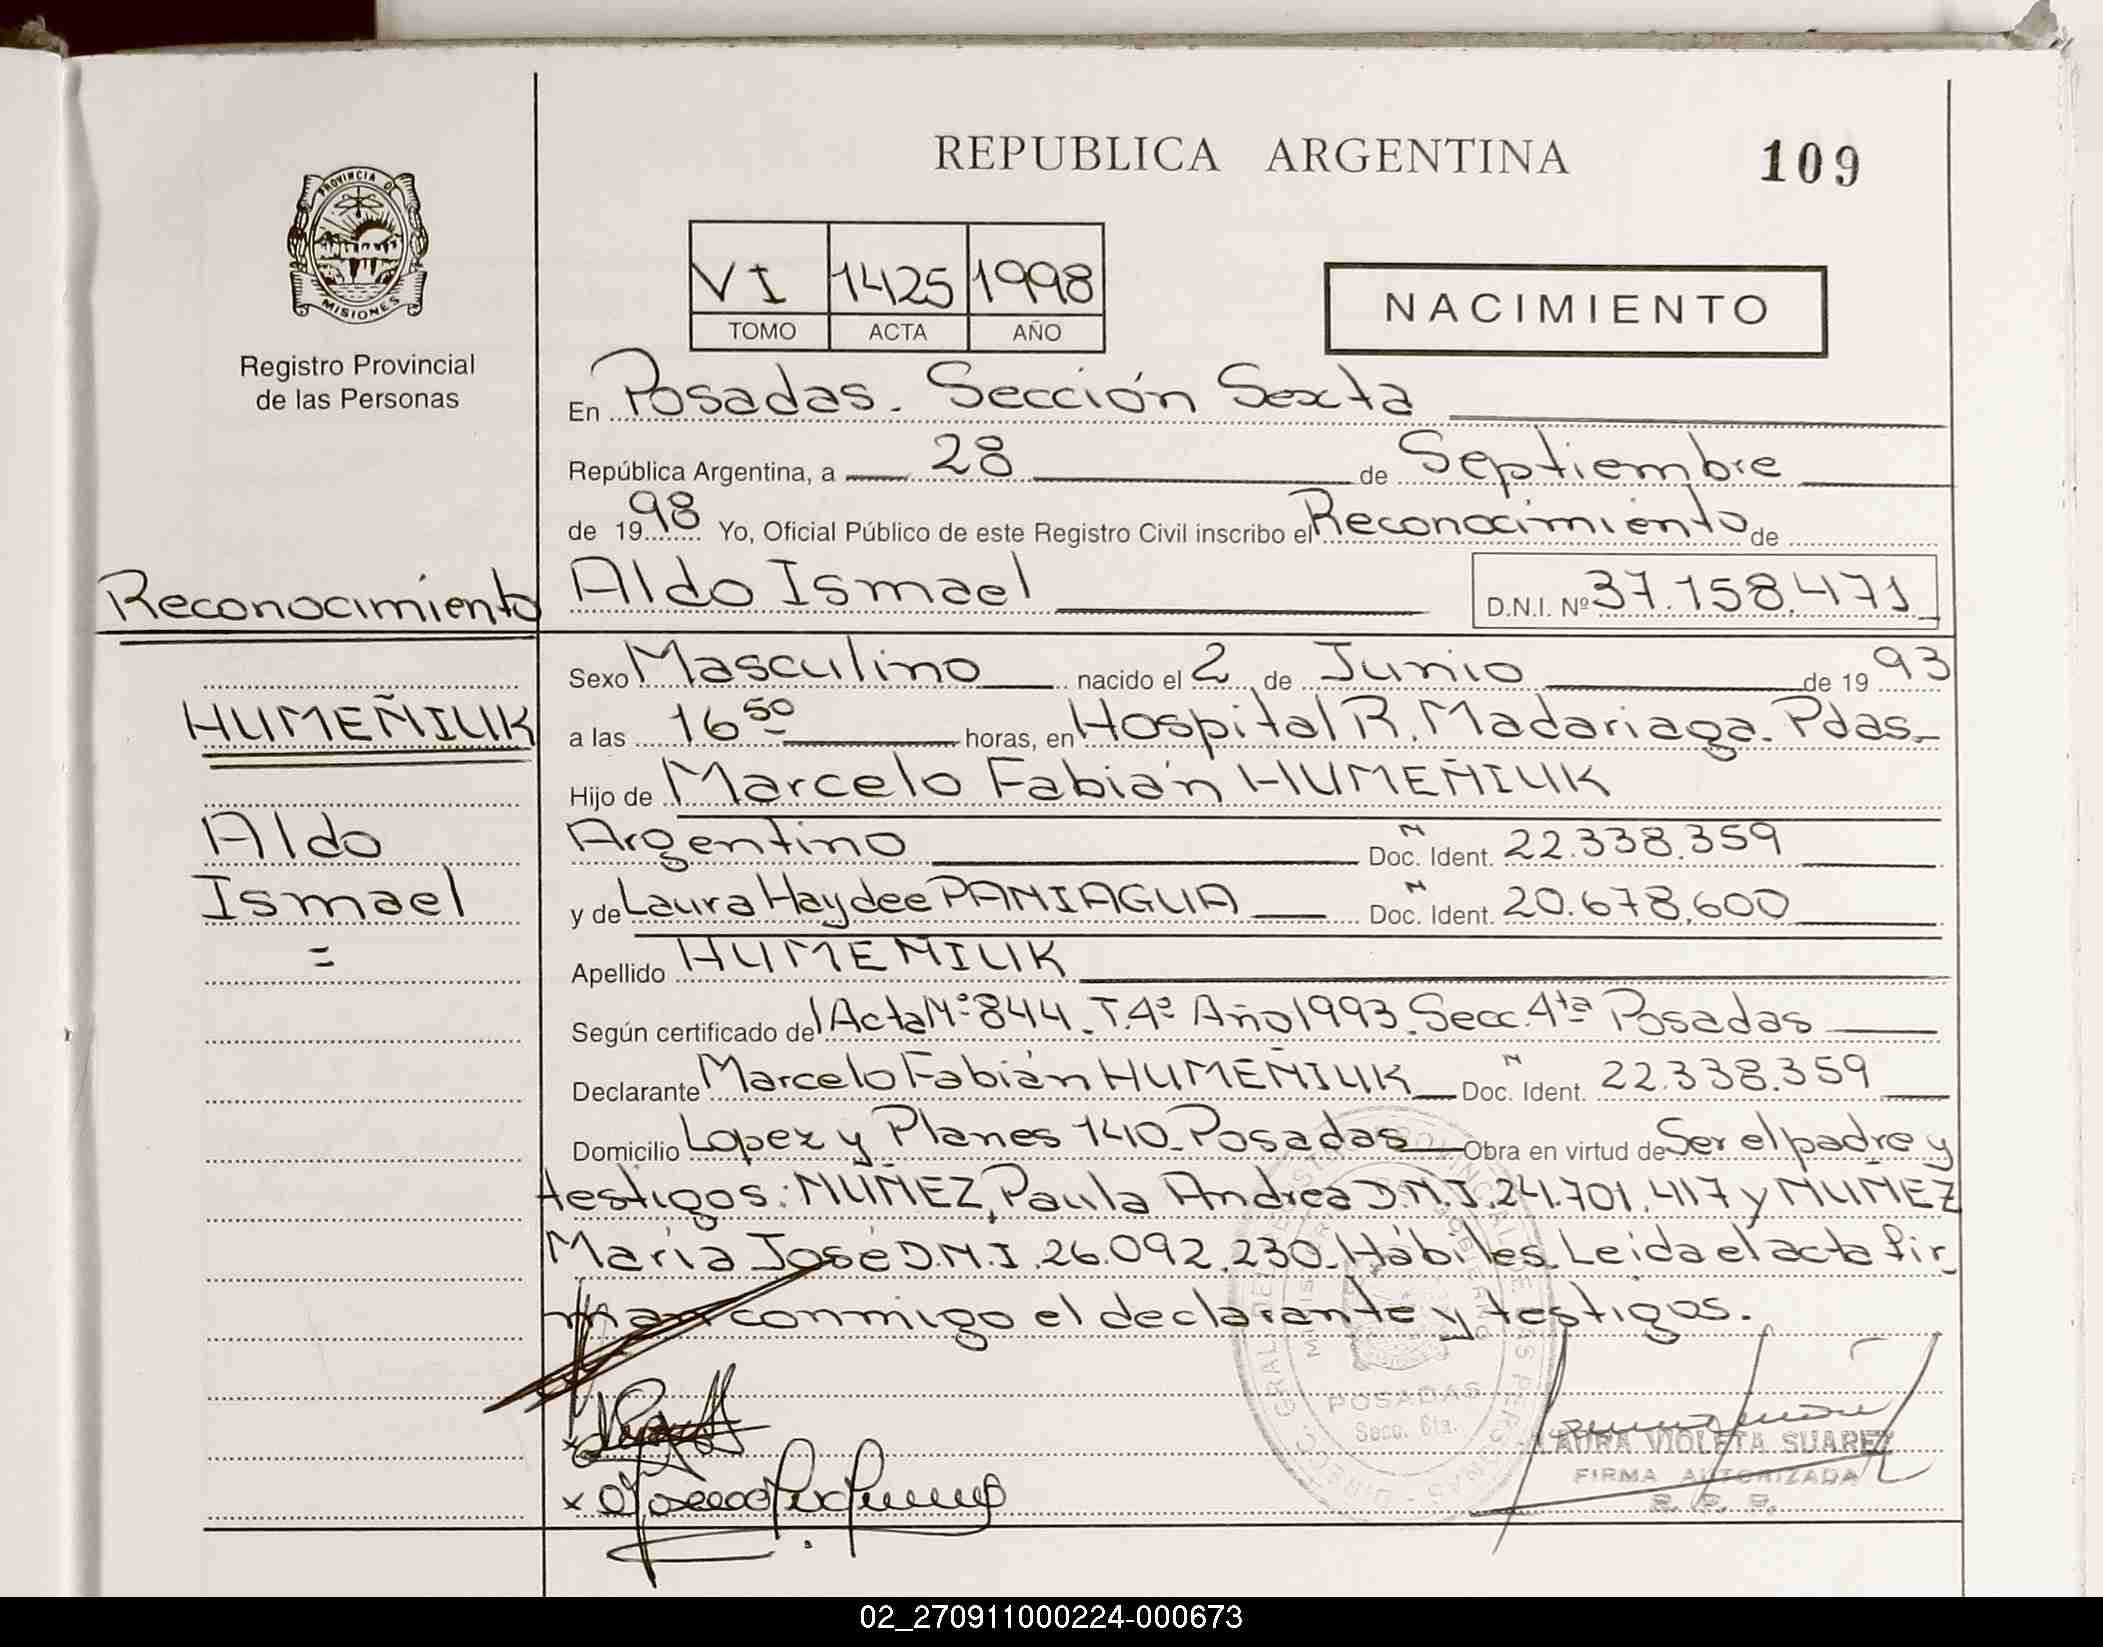 REPUBLICA ARGENTINA
109
PROVINCIA D
MISIONES
Registro Provincial
de las Personas
VI 1425 1998
TOMO ACTA AÑO
NACIMIENTO
En Posadas. Sección Sexta
República Argentina, a 28 de Septiembre
de 1998 Yo, Oficial Público de este Registro Civil inscribo el Reconocimiento de
Reconocimiento
Aldo Ismael D.N.I. Nº 37.158.471
Sexo Masculino nacido el 2 de Junio de 1993
HUMEÑIUK
a las 16 50 horas, en Hospital R. Madariaga. Pdas.
Hijo de Marcelo Fabián HUMEÑIUK
Aldo
Argentino Doc. N Ident. 22.338.359
Ismael
y de Laura Haydee PANIAGUA Doc. N Ident. 20.678.600
=
Apellido HUMEÑIUK
Según certificado de Acta Nº 844. T. 4º Año 1993. Secc. 4ta Posadas
Declarante Marcelo Fabián HUMEÑIUK Doc. N Ident. 22.338.359
Domicilio Lopez y Planes 1410. Posadas Obra en virtud de Ser el padre y
testigos: NUÑEZ, Paula Andrea D.N.I. 24.701.417 y NUÑEZ
María José D.N.I. 26.092.230. Hábiles. Leída el acta fir-
man conmigo el declarante y testigos.
POSADAS
Secc. 6ta.
LAURA VIOLETA SUAREZ
FIRMA AUTORIZADA
R. P. P.
02_270911000224-000673